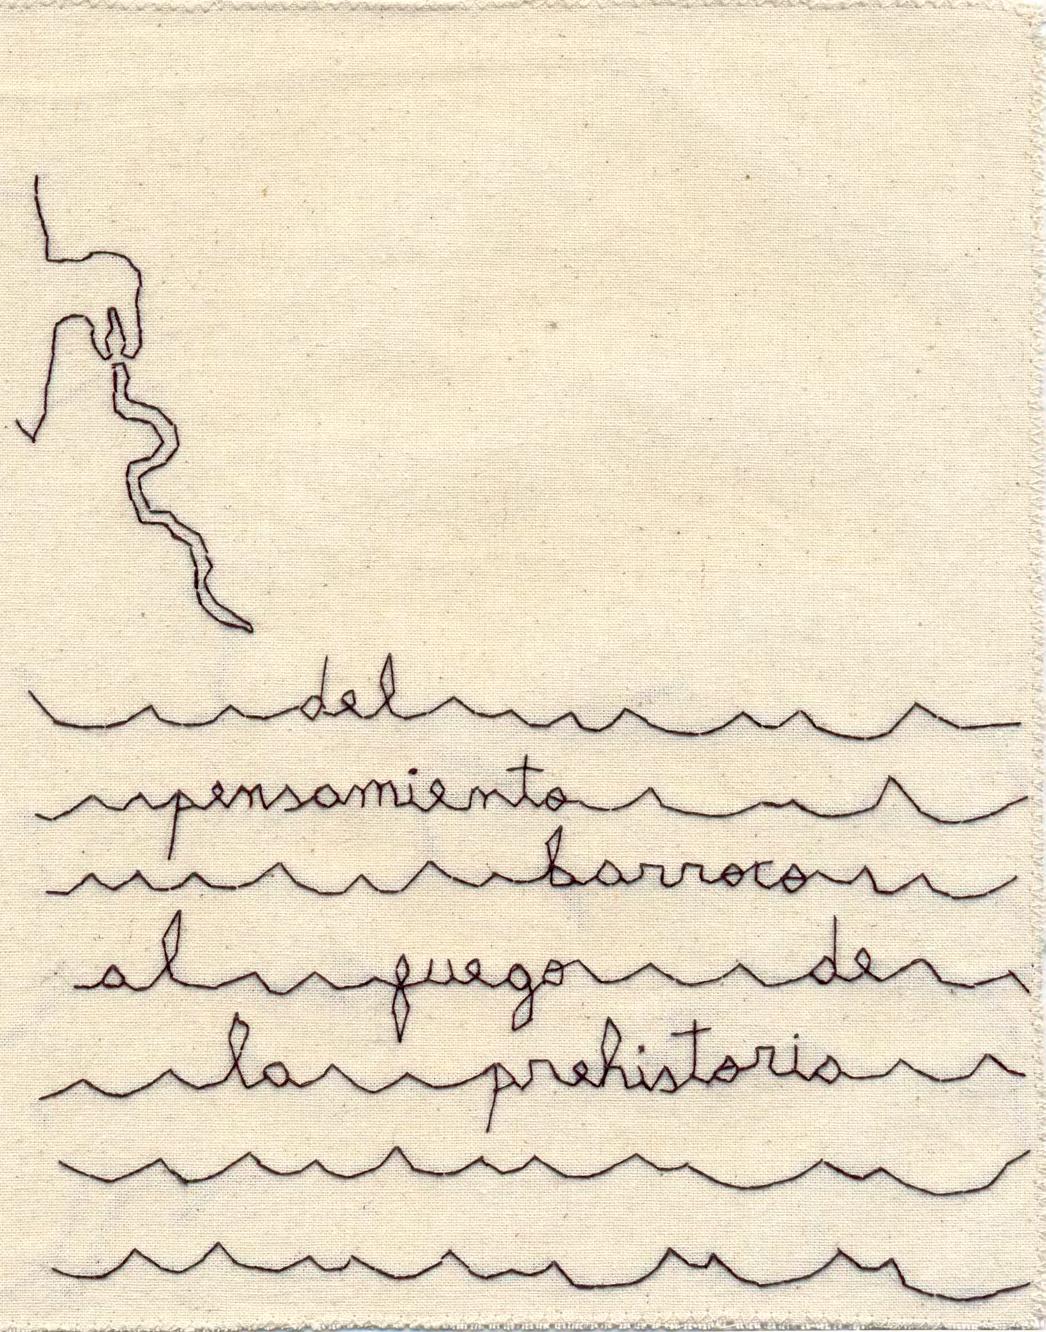 del
pensamiento
barroco
al fuego de
la prehistoria